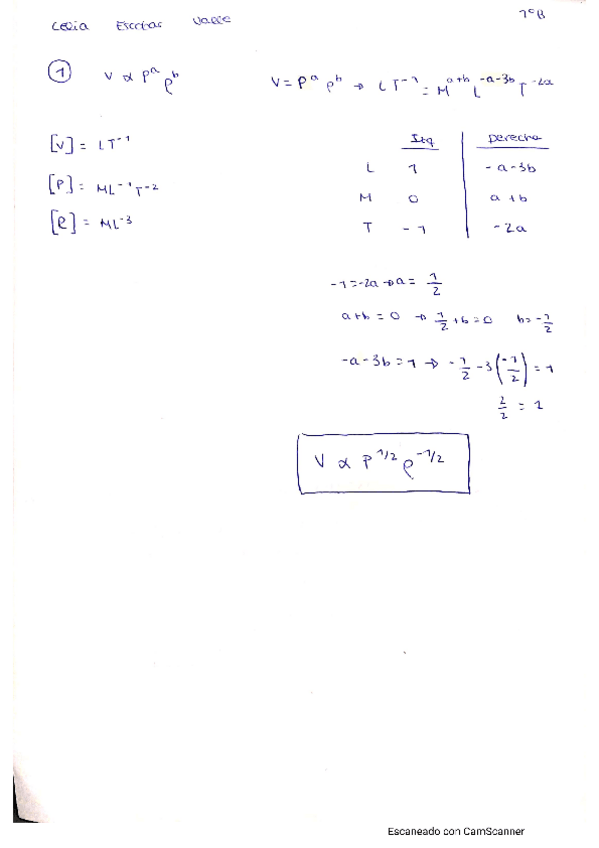 Celia Escribas Valle 1ºB
① V ∝ Pᵃ ρᵇ V = Pᵃ ρᵇ → LT⁻¹ = Mᵃ⁺ᵇ L⁻ᵃ⁻³ᵇ T⁻²ᵃ
[V] = LT⁻¹
[P] = ML⁻¹T⁻²
[ρ] = ML⁻³
Izq Derecha
L 1 -a-3b
M 0 a+b
T -1 -2a
-1 = -2a → a = 1/2
a+b = 0 → 1/2 + b = 0 b = -1/2
-a-3b = 1 → -1/2 - 3(-1/2) = 1
2/2 = 1
V ∝ P^1/2 ρ^-1/2
Escaneado con CamScanner